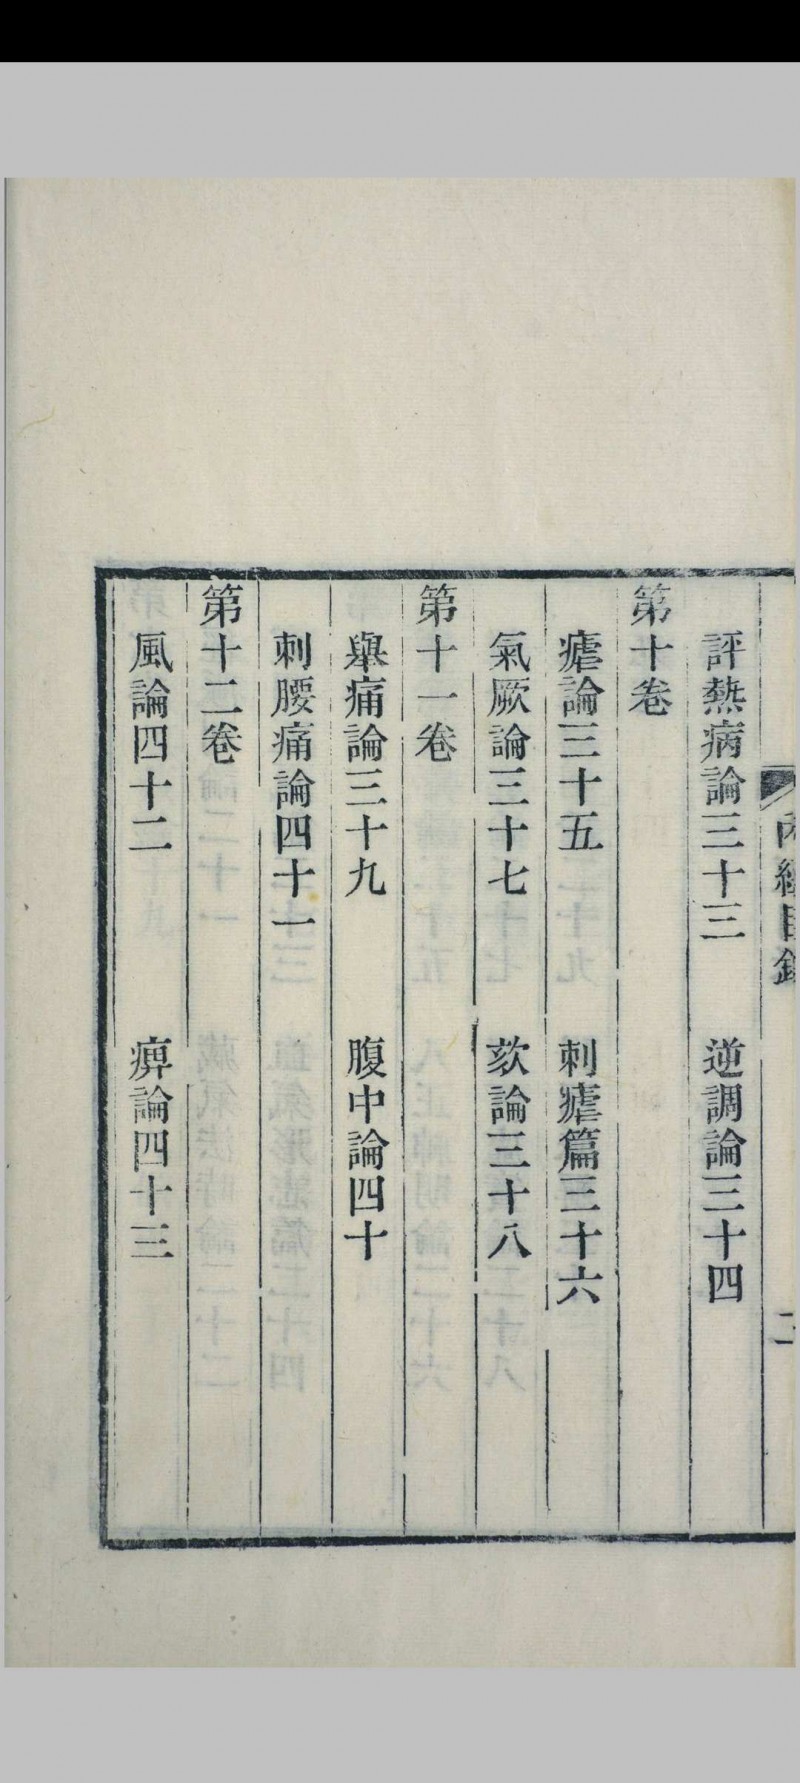 內經目錄
二
評熱病論三十三　逆調論三十四
第十卷
瘧論三十五　刺瘧篇三十六
氣厥論三十七　欬論三十八
第十一卷
舉痛論三十九　腹中論四十
刺腰痛論四十一
第十二卷
風論四十二　痹論四十三